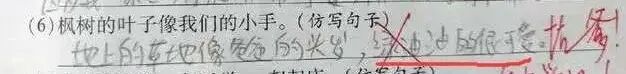 (6)枫树的叶子像我们的小手。(仿写句子)
地上的草地像爸爸的头发,绿油油的很可爱。抬爹!